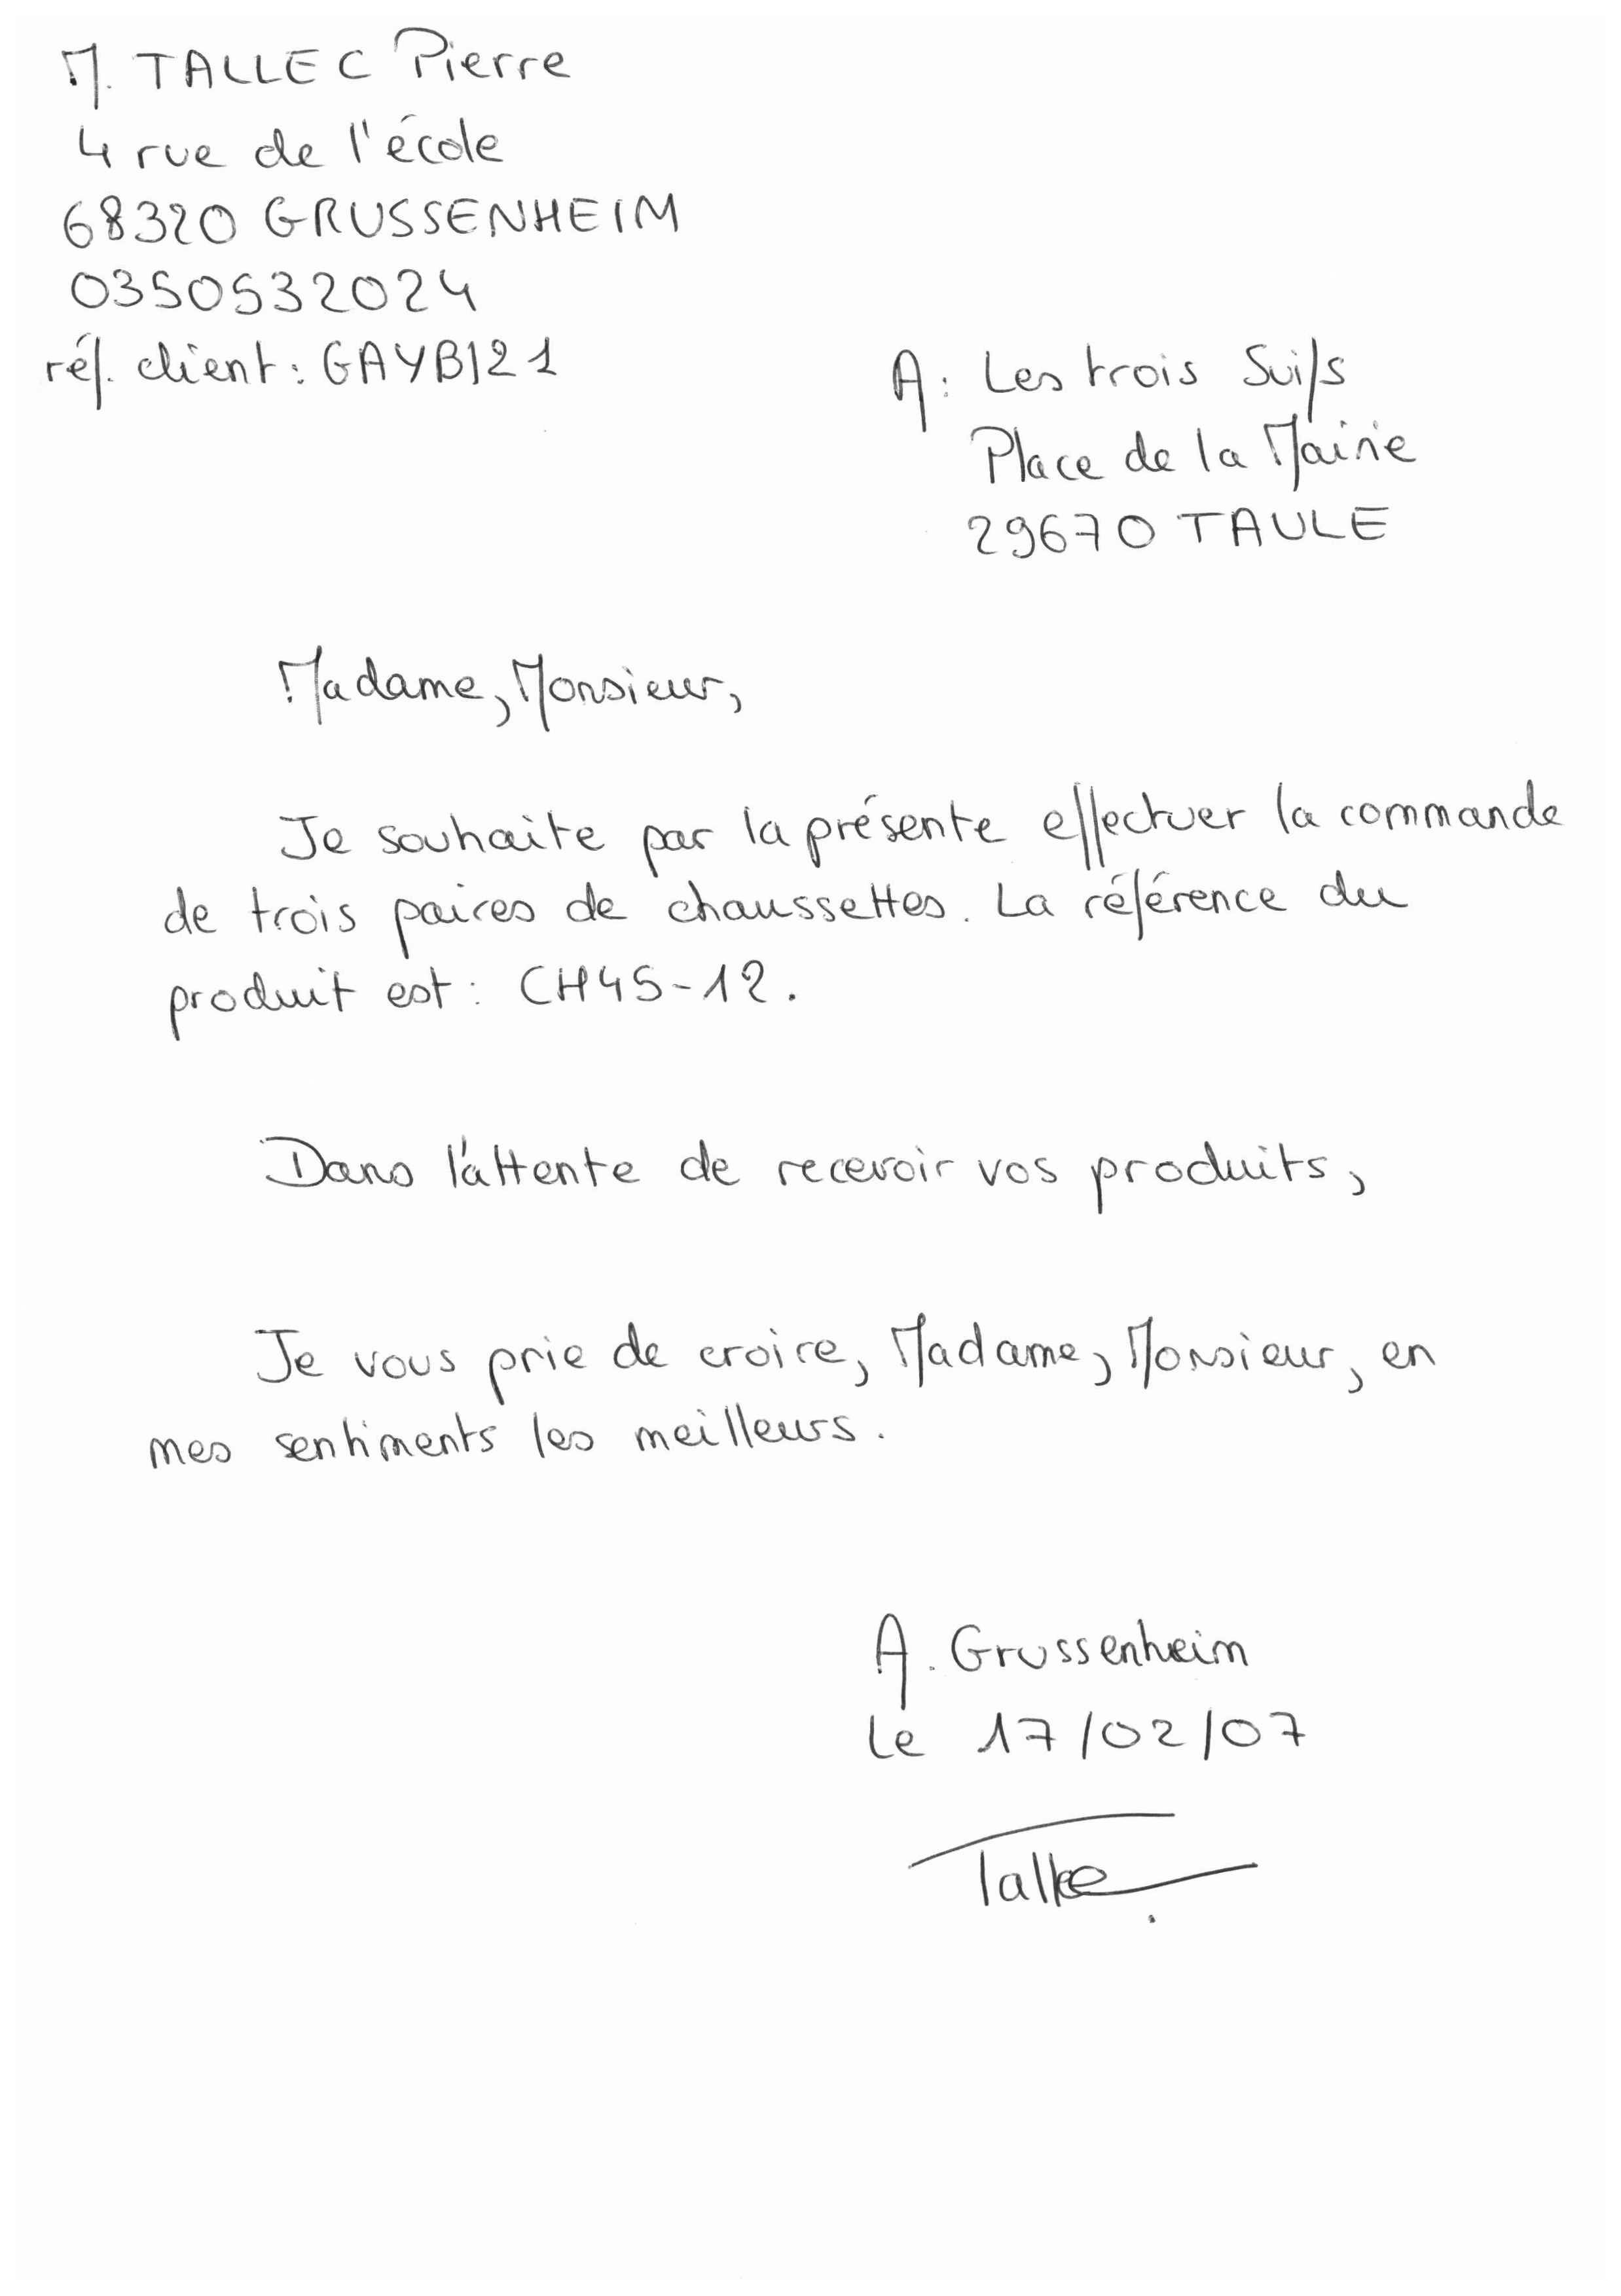 M. TALLEC Pierre
4 rue de l'école
68320 GRUSSENHEIM
0350532024
réf. client : GAYB121
A : Les trois Suifs
Place de la Mairie
29670 TAULE
Madame, Monsieur,
Je souhaite par la présente effectuer la commande
de trois paires de chaussettes. La référence du
produit est : CH45-12.
Dans l'attente de recevoir vos produits,
Je vous prie de croire, Madame, Monsieur, en
mes sentiments les meilleurs.
A. Grussenheim
le 17/02/07
Tallec